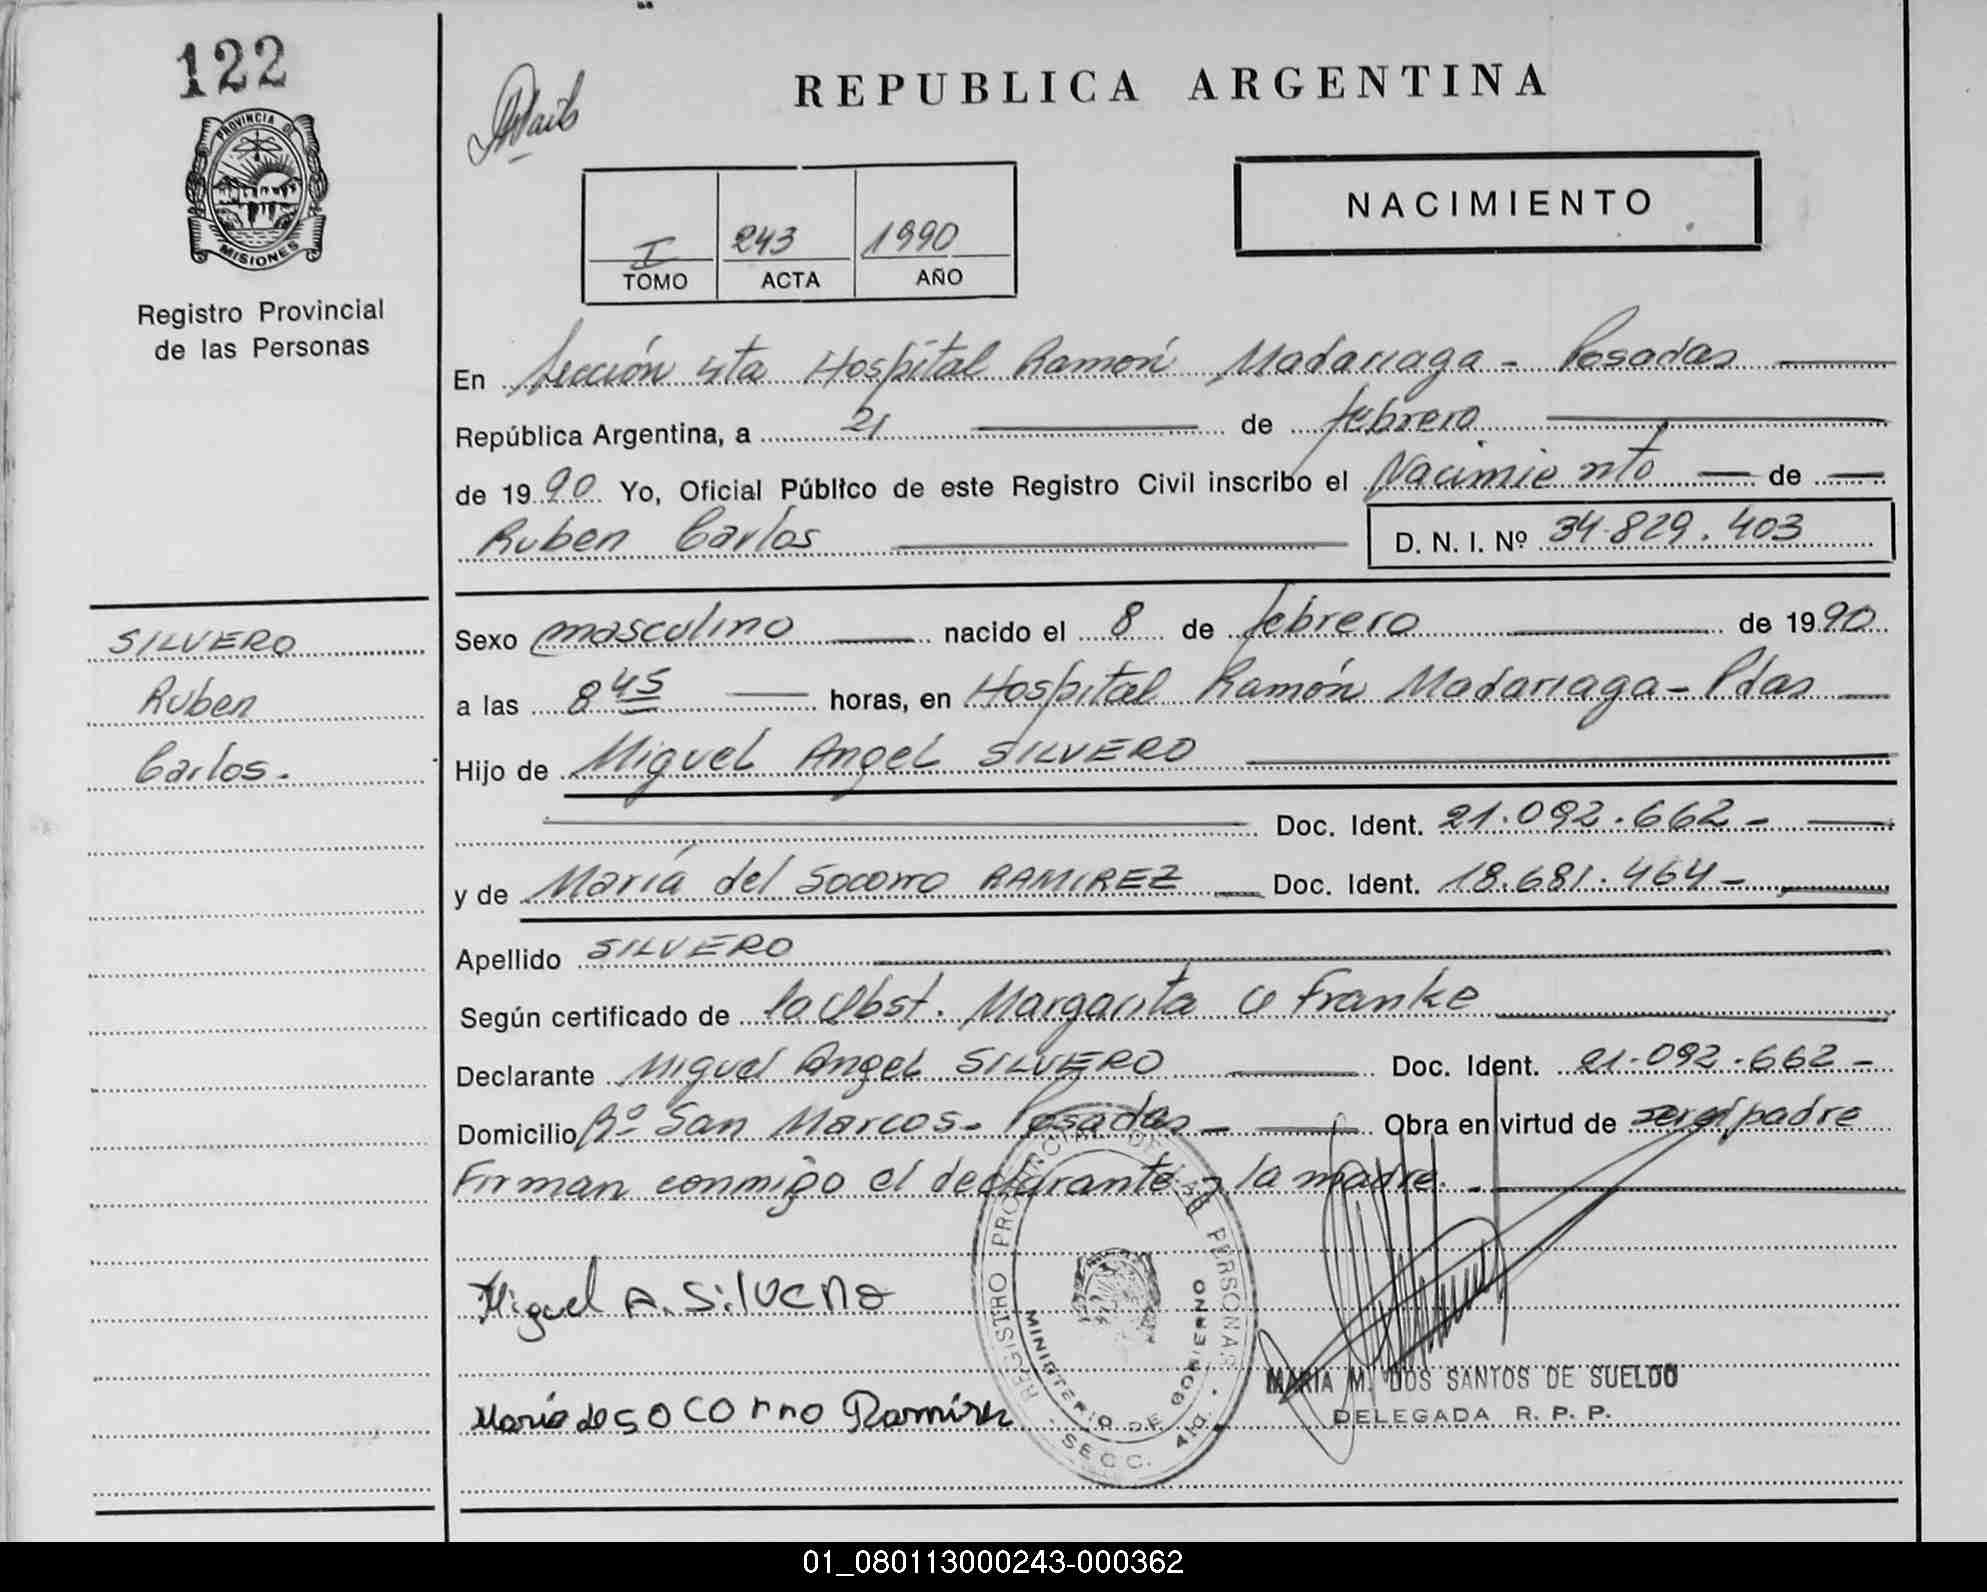 122
PROVINCIA DE
MISIONES
Registro Provincial
de las Personas
SILVERO
Ruben
Carlos.-
REPUBLICA ARGENTINA
NACIMIENTO
I 243 1990
TOMO ACTA AÑO
En Sección 4ta Hospital Ramón Madariaga - Posadas
República Argentina, a 21 de febrero
de 1990 Yo, Oficial Público de este Registro Civil inscribo el Nacimiento de
Ruben Carlos D. N. I. Nº 34.829.403
Sexo masculino nacido el 8 de febrero de 1990
a las 8 45 horas, en Hospital Ramón Madariaga - Pdas
Hijo de Miguel Angel SILVERO
Doc. Ident. 21.092.662 -
y de María del Socorro RAMIREZ Doc. Ident. 18.681.464 -
Apellido SILVERO
Según certificado de la Obst. Margarita Franke
Declarante Miguel Angel SILVERO Doc. Ident. 21.092.662 -
Domicilio Bº San Marcos - Posadas - Obra en virtud de ser el padre
Firman conmigo el declarante y la madre. -
Miguel A. Silvero
María de Socorro Ramirez
REGISTRO PROVINCIAL DE LAS PERSONAS
MINISTERIO DE GOBIERNO
SECC. 4ta.
MARIA M. DOS SANTOS DE SUELDO
DELEGADA R. P. P.
01_080113000243-000362